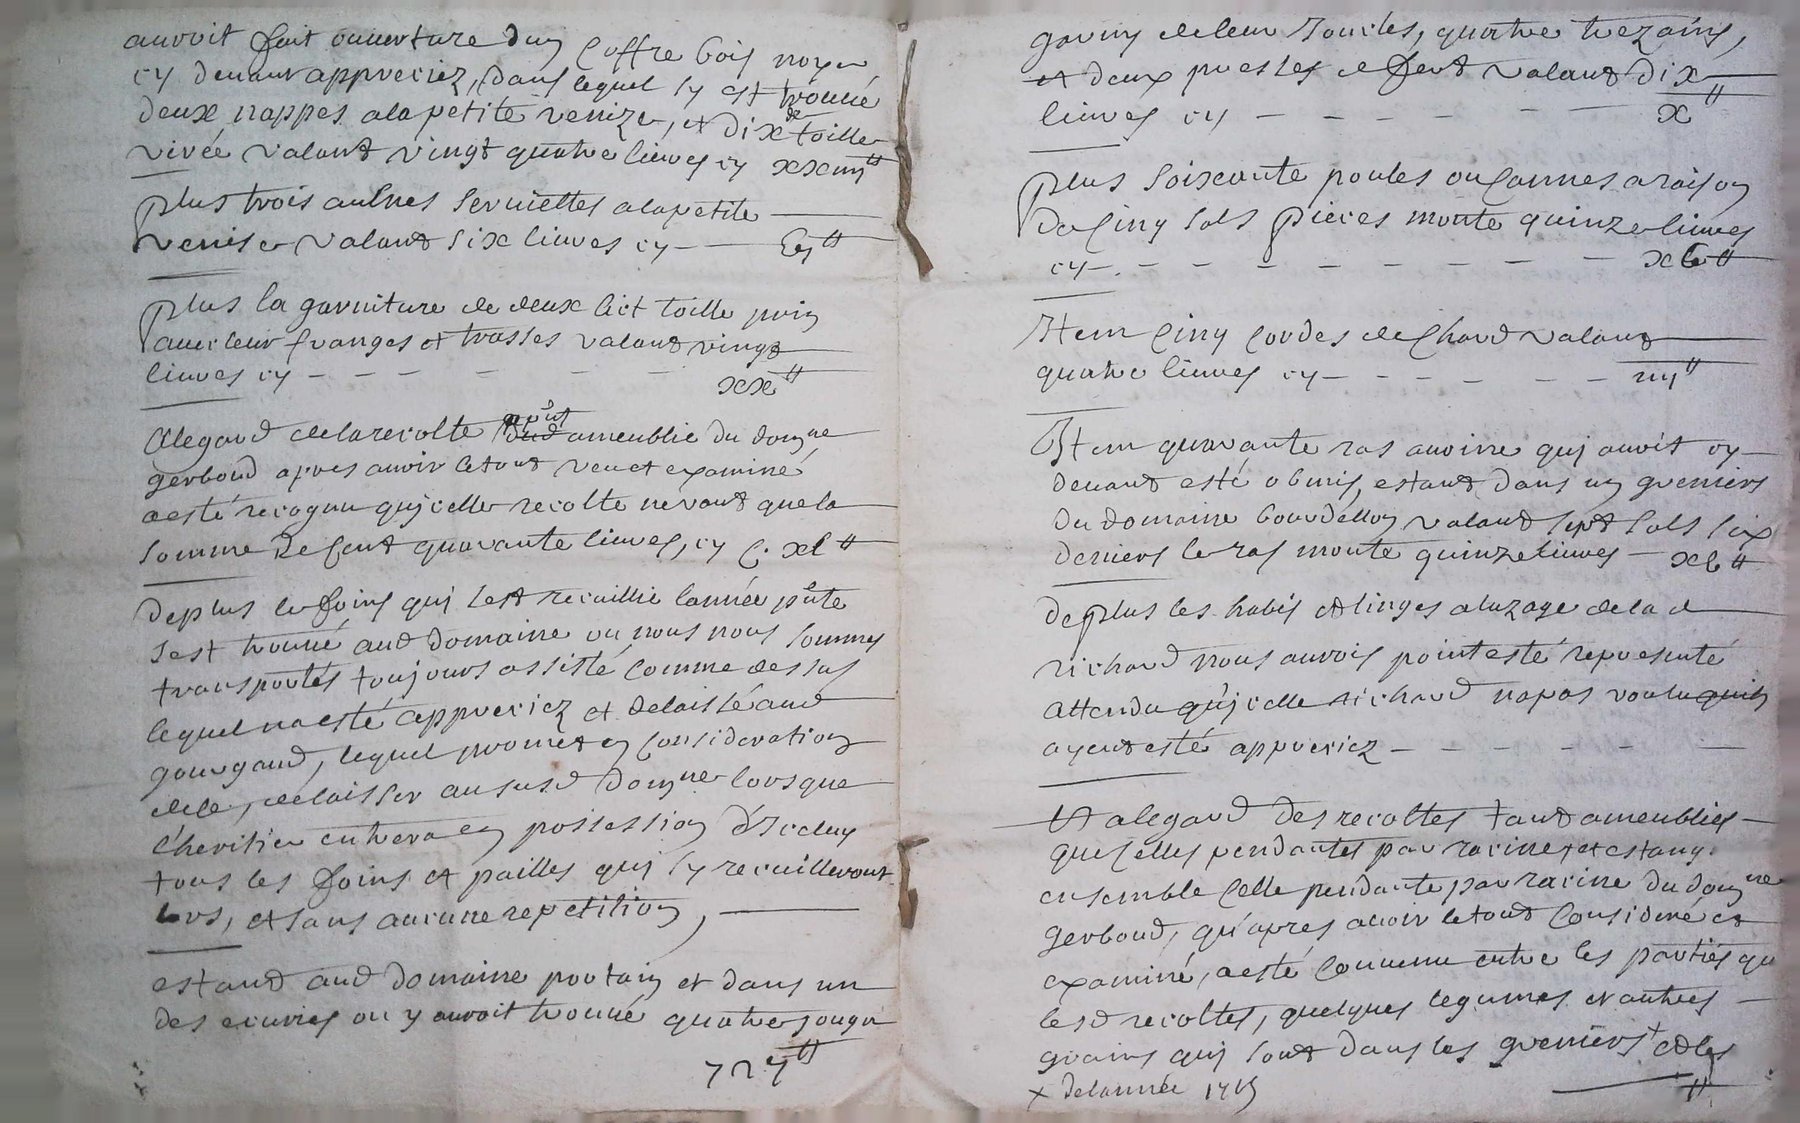 auroit fait ouverture dun coffre bois noyer
cy devant appreciez, dans lequel sy est trouvé
deux nappes a la petite venize, et dix de toille
rirée valant vingt quatre livres cy xxiiij ᵗᵗ
plus trois aulnes serviettes a la petite
venise valant six livres cy vj ᵗᵗ
plus la garniture de deux lict toille prin
avec leur franges et trasses valant vingt
livres cy xx ᵗᵗ
A legard de la recolte ameublie du domne
gerboud apres avoir le tout veu et examiné
a esté recognu qujcelle recolte ne vaut que la
somme de cent quarante livres, cy C. xl ᵗᵗ
de plus le foins quj sest recuillie lannée pnte
sest trouvé aud domaine ou nous nous sommes
transportés toujours assisté comme dessus
lequel na esté appreciez et delaissé aud
gourgaud, lequel promet en consideration
dele, delaisser au susd domne lorsque
lheritier entrera en possession dIceluy
tous les foins et pailles quj sy recuilleront
lors, et sans aucune repetition,
estant aud domaine portain et dans un
des ecuries ou y auroit trouvé quatre jougs
727 ᵗᵗ
garny de leur Joucles, quatre trezains,
et deux presles de fert valant dix
livres cy x ᵗᵗ
plus soixante poules ou cannes a raison
de cinq sols pieces monte quinze livres
cy xv ᵗᵗ
Item cinq cordes de chard valant
quatre livres cy iiij ᵗᵗ
Item quarante ras avoine quj auroit cy
devant esté obmis, estant dans un greniers
du domaine bourdellon valant sept sols six
deniers le ras monte quinze livres xv ᵗᵗ
de plus les habis et linges a luzage de la d
richard nous auroit point esté representé
attendu qujcelle richard na pas voulu quils
ayent esté appreciez
Et a legard des recoltes tant ameublies
que celles pendantes par racine et estang
ensemble celle pendante par racine du domne
gerboud, qu'apres avoir le tout consideré et
examiné, a esté convenu entre les parties que
lesd recoltes, quelques legumes et autres
grains quj sont dans les greniers + et les
+ de lannée 1715